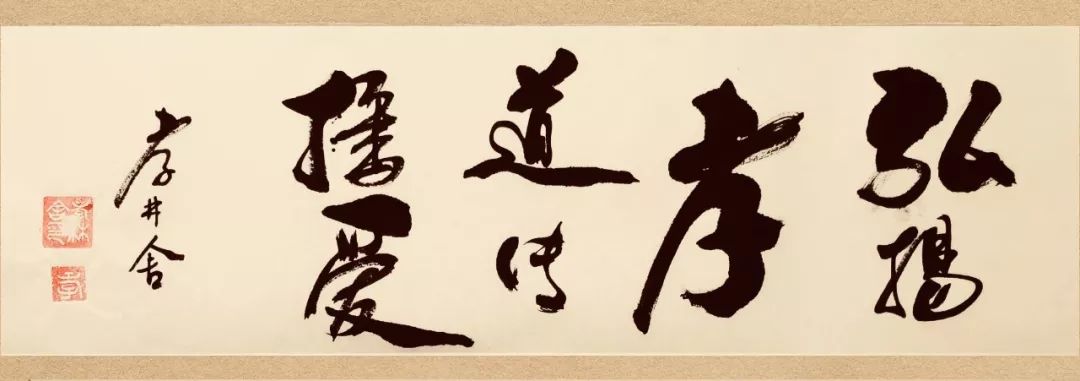 弘揚
孝
道傳
播愛
孝井舍